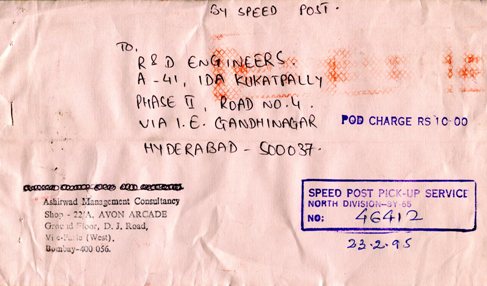 BY SPEED POST.
TO,
R&D ENGINEERS.
A-41, IDA KUKATPALLY
PHASE II, ROAD NO.4.
VIA I.E. GANDHINAGAR
HYDERABAD - 500037.
POD CHARGE RS 10-00
Ashirwad Management Consultancy
Shop - 22'A, AVON ARCADE
Ground Floor, D. J. Road,
Vile-Parle (West),
Bombay-400 056.
SPEED POST PICK-UP SERVICE
NORTH DIVISION-BY-65
NO: 46412
23.2.95